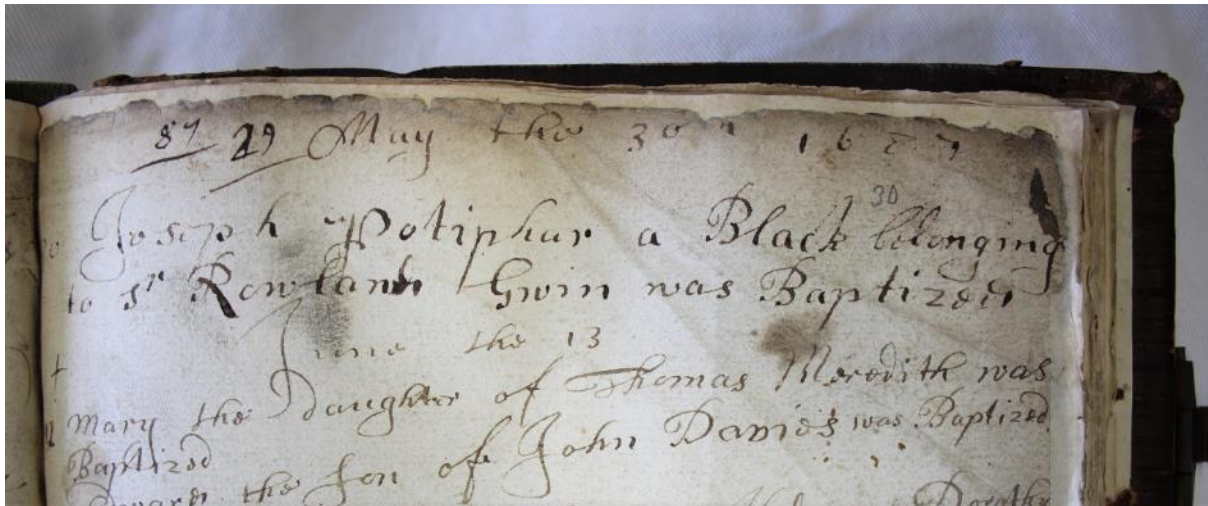 87 29 May the 30 1687
30
Joseph Potiphar a Black belonging
to Sr Rowland Gwin was Baptized
June the 13
Mary the Daughter of Thomas Meredith was
Baptized
the Son of John Davies was Baptized
Dorathy